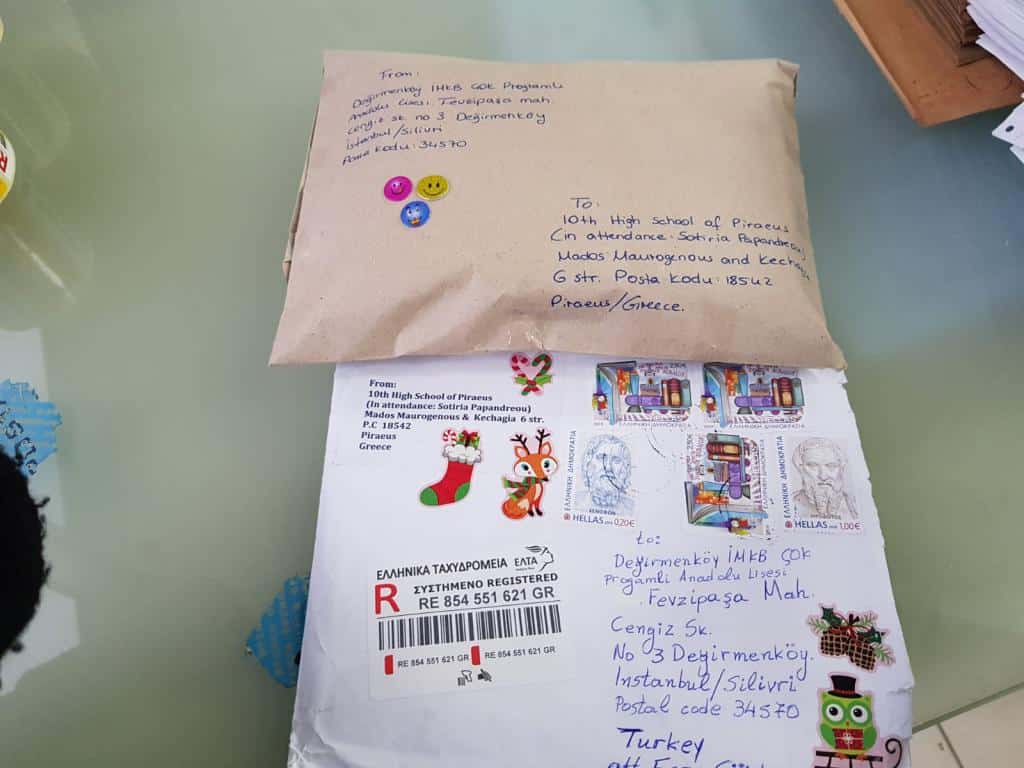 From:
Değirmenköy İMKB ÇOK Programlı
Anadolu Lisesi Fevzipaşa mah.
Cengiz sk. no 3 Değirmenköy
İstanbul/Silivri
Posta Kodu: 34570
To:
10th High School of Piraeus
(in attendance: Sotiria Papandreou)
Mados Maurogenous and Kechagia
6 str. Posta Kodu: 18542
Piraeus/Greece.
From:
10th High School of Piraeus
(In attendance: Sotiria Papandreou)
Mados Maurogenous & Kechagia 6 str.
P.C 18542
Piraeus
Greece
ΕΛΛΗΝΙΚΗ ΔΗΜΟΚΡΑΤΙΑ
HELLAS 0,20€
ΕΛΛΗΝΙΚΗ ΔΗΜΟΚΡΑΤΙΑ
HELLAS 1,00€
ΕΛΛΗΝΙΚΑ ΤΑΧΥΔΡΟΜΕΙΑ ΕΛΤΑ
ΣΥΣΤΗΜΕΝΟ REGISTERED
R RE 854 551 621 GR
RE 854 551 621 GR RE 854 551 621 GR
to:
Değirmenköy İMKB ÇOK
Progamli Anadolu Lisesi
Fevzipaşa Mah.
Cengiz Sk.
No 3 Değirmenköy.
Instanbul/Silivri
Postal code 34570
Turkey